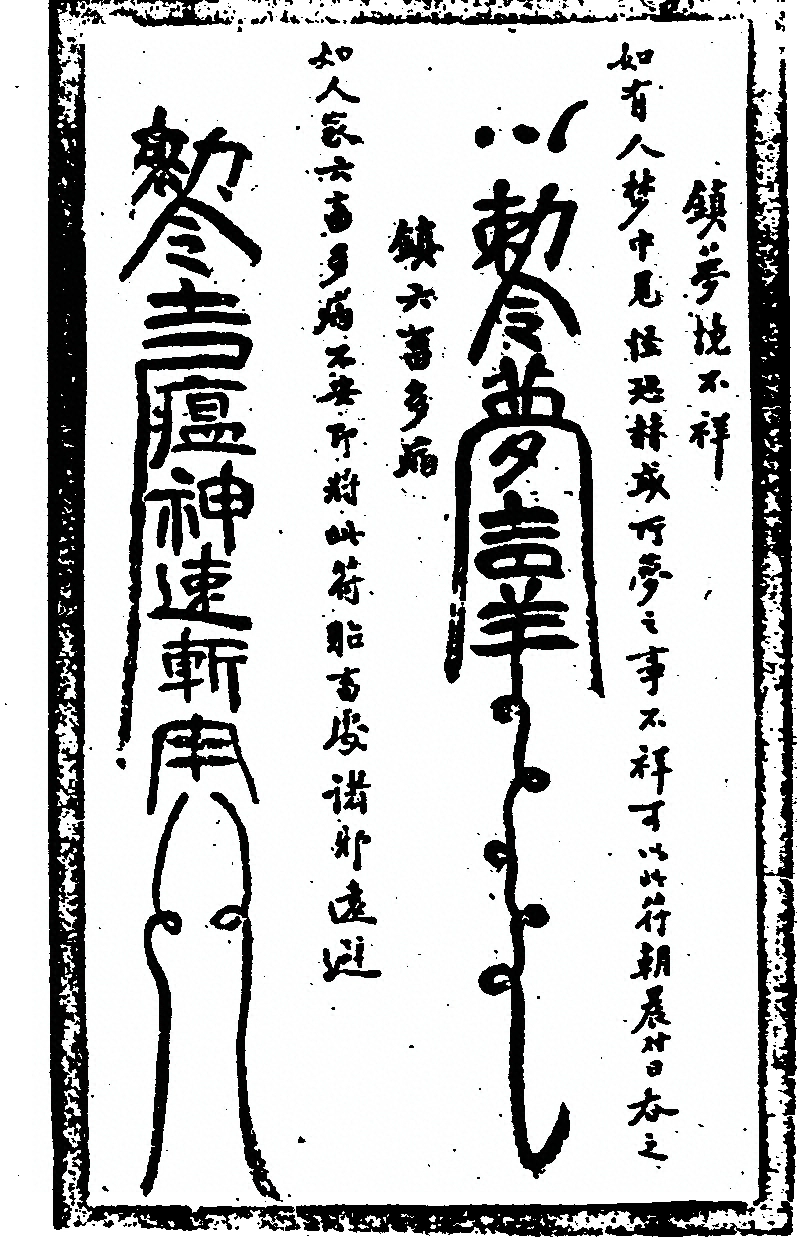 鎮夢境不祥
如有人梦中見怪恐赫或所夢之事不祥可以此符朝晨对日吞之
敕令夢吉羊
鎮六畜多癌
如人家六畜多病不安即將此符貼畜處諸邪遠避
勅令吉瘟神速斬